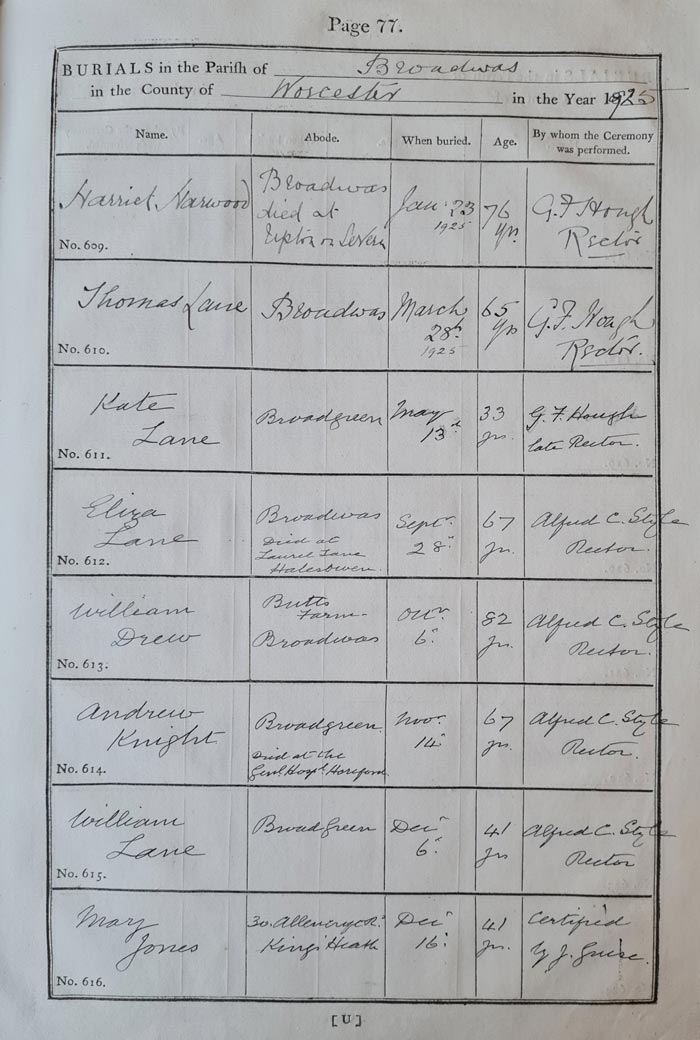 Page 77.
BURIALS in the Parish of Broadwas
in the County of Worcester in the Year 1925
Name. Abode. When buried. Age. By whom the Ceremony was performed.
Harriet Narwood
No. 609.
Broadwas
died at
Upton on Severn
Jan. 23
1925
76
yrs.
G. F. Hough
Rector
Thomas Lane
No. 610.
Broadwas
March
28th
1925
65
yrs
G. F. Hough
Rector.
Kate
Lane
No. 611.
Broadgreen
May
13
33
yrs.
G. F. Hough
late Rector.
Eliza
Lane
No. 612.
Broadwas
Died at
Laurel Lane
Halesowen.
Sept.
28
67
yrs.
Alfred C. Style
Rector.
William
Drew
No. 613.
Butts
Farm
Broadwas
6
82
yrs.
Alfred C. Style
Rector.
Andrew
Knight
No. 614.
Broadgreen
Died at the
Genl. Hospl. Hereford
Nov.
14
67
yrs.
Alfred C. Style
Rector.
William
Lane
No. 615.
Broadgreen
Dec
6
41
yrs
Alfred C. Style
Rector
May
Jones
No. 616.
30.
King's Heath
Dec
16
41
yrs.
Certified
by J. Guise.
[U]